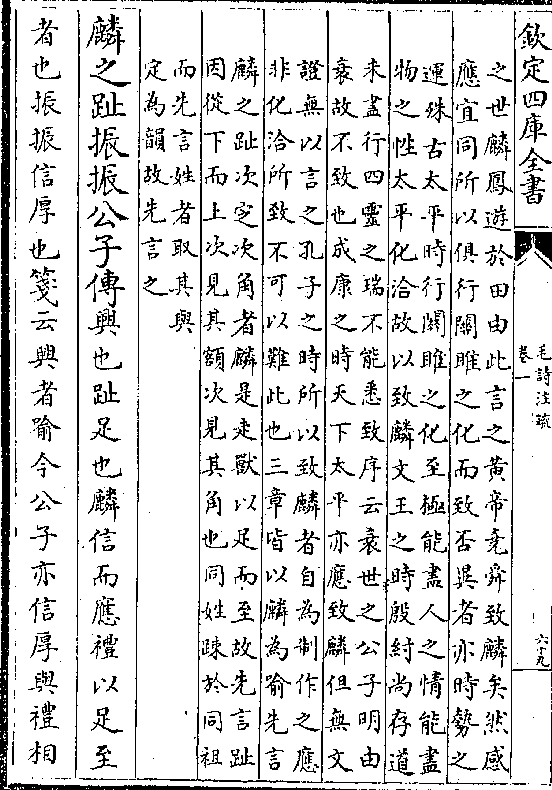 欽定四庫全書
毛詩注疏
卷一
六十九
之世麟鳳遊於田由此言之黃帝堯舜致麟矣然感
應宜同所以俱行關雎之化而致否異者亦時勢之
運殊古太平時行關雎之化至極能盡人之情能盡
物之性太平化洽故以致麟文王之時殷紂尚存道
未盡行四靈之瑞不能悉致序云衰世之公子明由
衰故不致也成康之時天下太平亦應致麟但無文
證無以言之孔子之時所以致麟者自為制作之應
非化洽所致不可以難此也三章皆以麟為喻先言
麟之趾次定次角者麟是走獸以足而至故先言趾
因從下而上次見其額次見其角也同姓疎於同祖
而先言姓者取其與
定為韻故先言之
麟之趾振振公子傳興也趾足也麟信而應禮以足至
者也振振信厚也箋云興者喻今公子亦信厚與禮相